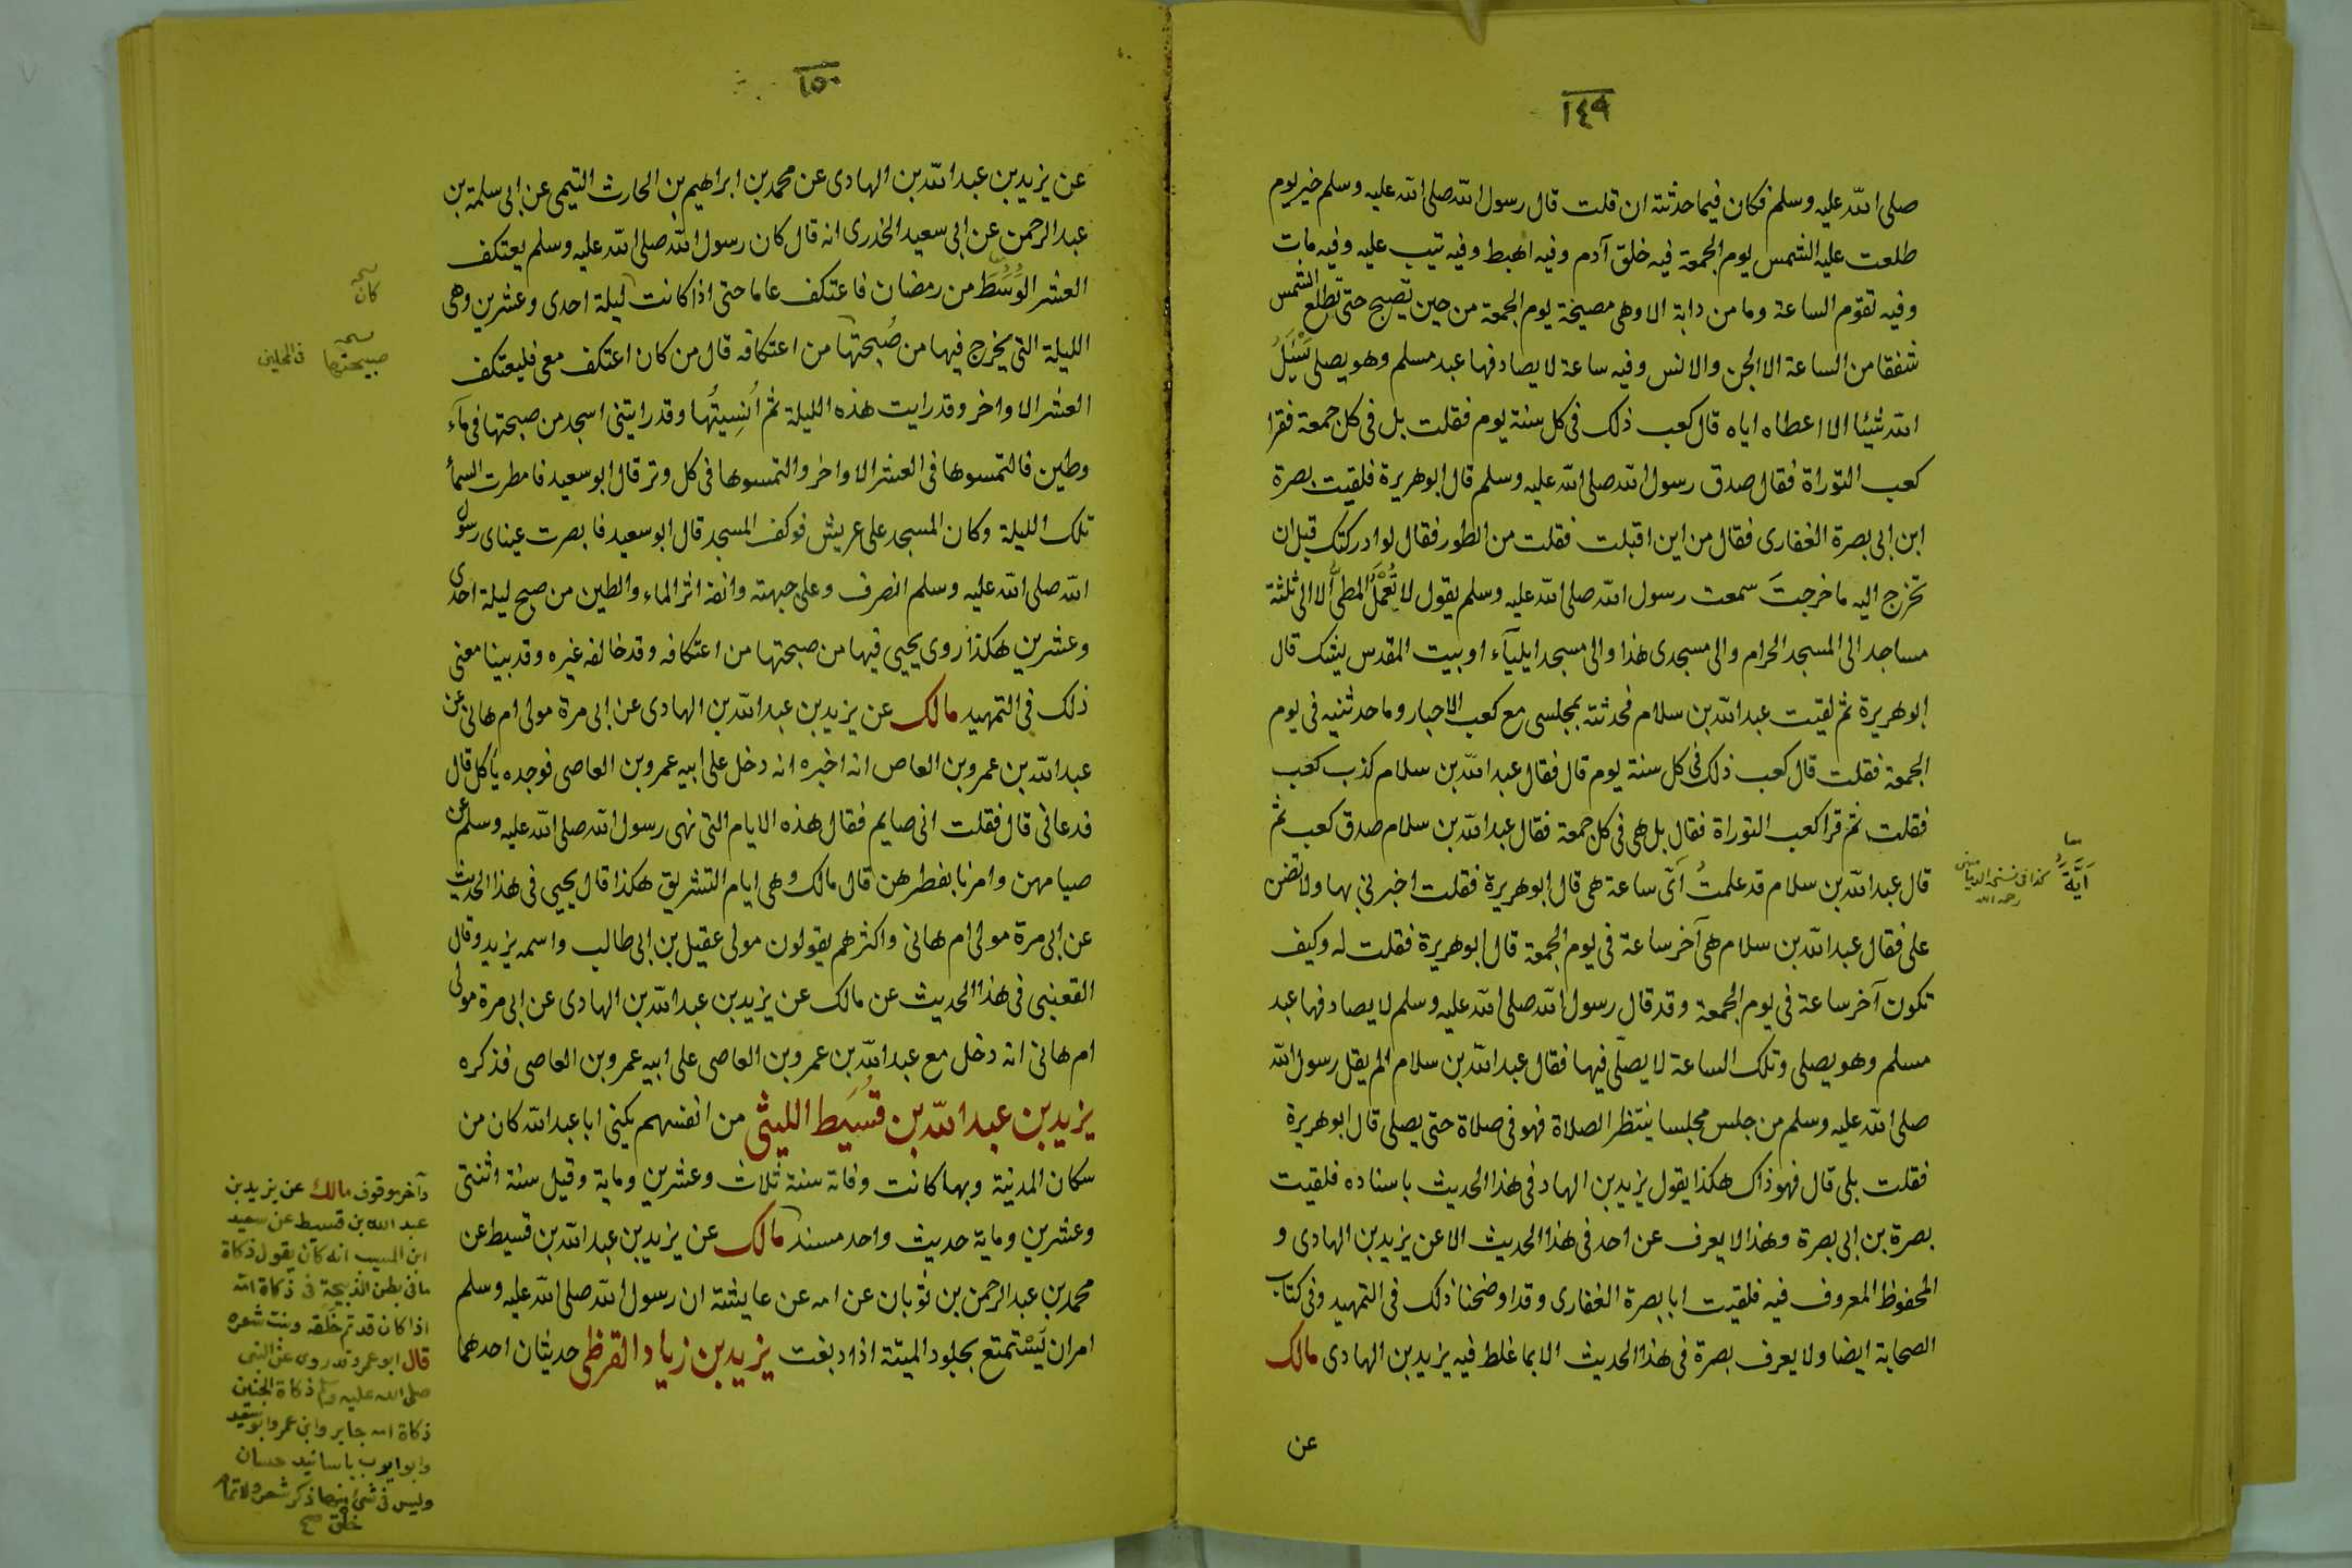 ١٤٩
صلى الله عليه وسلم فكان فيما حدثته ان قلت قال رسول الله صلى الله عليه وسلم خير يوم
طلعت عليه الشمس يوم الجمعة فيه خلق آدم وفيه اهبط وفيه تيب عليه وفيه مات
وفيه تقوم الساعة وما من دابة الا وهى مصيخة يوم الجمعة من حين تصبح حتى تطلع الشمس
شفقا من الساعة الا الجن والانس وفيه ساعة لا يصادفها عبد مسلم وهو يصلى يَسْئَلُ
الله شيئا الا اعطاه اياه قال كعب ذلك فى كل سنة يوم فقلت بل فى كل جمعة فقرا
كعب التوراة فقال صدق رسول الله صلى الله عليه وسلم قال ابوهريرة فلقيت بصرة
ابن ابى بصرة الغفارى فقال من اين اقبلت فقلت من الطور فقال لو ادركتك قبل ان
تخرج اليه ما خرجتَ سمعت رسول الله صلى الله عليه وسلم يقول لا تُعْمَلُ المطىُّ الا الى ثلثة
مساجد الى المسجد الحرام والى مسجدى هذا والى مسجد ايلياء او بيت المقدس يشك قال
ابوهريرة ثم لقيت عبد الله بن سلام فحدثته بمجلسى مع كعب الاحبار وما حدثنيه فى يوم
الجمعة فقلت قال كعب ذلك فى كل سنة يوم قال فقال عبد الله بن سلام كذب كعب
فقلت ثم قرا كعب التوراة فقال بل هى فى كل جمعة فقال عبد الله بن سلام صدق كعب ثم
قال عبد الله بن سلام قد علمتُ اَىّ ساعة هى قال ابوهريرة فقلت اخبرنى بها ولا تضن
على فقال عبد الله بن سلام هى آخر ساعة فى يوم الجمعة قال ابوهريرة فقلت له وكيف
تكون آخر ساعة فى يوم الجمعة وقد قال رسول الله صلى الله عليه وسلم لا يصادفها عبد
مسلم وهو يصلى وتلك الساعة لا يصلّى فيها فقال عبد الله بن سلام الم يقل رسول الله
صلى الله عليه وسلم من جلس مجلسا ينتظر الصلاة فهو فى صلاة حتى يصلى قال ابوهريرة
فقلت بلى قال فهو ذاك هكذا يقول يزيد بن الهاد فى هذا الحديث باسناده فلقيت
بصرة بن ابى بصرة وهذا لا يعرف عن احد فى هذا الحديث الا عن يزيد بن الهادى و
المحفوظ المعروف فيه فلقيت ابا بصرة الغفارى وقد اوضحنا ذلك فى التمهيد وفى كتاب
الصحابة ايضا ولا يعرف بصرة فى هذا الحديث الا بما غلط فيه يزيد بن الهادى مالك
عن
اَيَّةَ كذا فى نسخة
رحمه الله
١٥٠
عن يزيد بن عبد الله بن الهادى عن محمد بن ابراهيم بن الحارث التيمى عن ابى سلمة بن
عبد الرحمن عن ابى سعيد الخدرى انه قال كان رسول الله صلى الله عليه وسلم يعتكف
العشر الوُسَطَ من رمضان فاعتكف عاما حتى اذا كانت ليلة احدى وعشرين وهى
الليلة التى يخرج فيها من صُبحتها من اعتكافه قال من كان اعتكف معى فليعتكف
العشر الاواخر وقد رايت هذه الليلة ثم اُنسِيتُها وقد رايتنى اسجد من صبحتها فى مآء
وطين فالتمسوها فى العشر الاواخر والتمسوها فى كل وتر قال ابو سعيد فامطرت السمأ
تلك الليلة وكان المسجد على عريش فوكف المسجد قال ابو سعيد فابصرت عيناى رسول
الله صلى الله عليه وسلم انصرف وعلى جبهته وانفه اثر الماء والطين من صبح ليلة احدى
وعشرين هكذا روى يحيى فيها من صبحتها من اعتكافه وقد خالفه غيره وقد بينا معنى
ذلك فى التمهيد مالك عن يزيد بن عبد الله بن الهادى عن ابى مرة مولى ام هانى عن
عبد الله بن عمرو بن العاص انه اخبره انه دخل على ابيه عمرو بن العاصى فوجده ياكل قال
فدعانى قال فقلت انى صايم فقال هذه الايام التى نهى رسول الله صلى الله عليه وسلم عن
صيامهن وامرنا بفطرهن قال مالك وهى ايام التشريق هكذا قال يحيى فى هذا الحديث
عن ابى مرة مولى ام هانى واكثرهم يقولون مولى عقيل بن ابى طالب واسمه يزيد وقال
القعنبى فى هذا الحديث عن مالك عن يزيد بن عبد الله بن الهادى عن ابى مرة مولى
ام هانى انه دخل مع عبد الله بن عمرو بن العاصى على ابيه عمرو بن العاصى فذكره
يزيد بن عبد الله بن قُسَيط الليثى من انفسهم يكنى ابا عبد الله كان من
سكان المدينة وبها كانت وفاته سنة ثلاث وعشرين وماية وقيل سنة اثنتى
وعشرين وماية حديث واحد مسند مالك عن يزيد بن عبد الله بن قسيط عن
محمد بن عبد الرحمن بن ثوبان عن امه عن عايشة ان رسول الله صلى الله عليه وسلم
امر ان يَسْتمتع بجلود الميتة اذا دبغت يزيد بن زياد القرظى حديثان احدهما
كان
صبيحتها فى المحلين
وآخر موقوف مالك عن يزيد بن
عبد الله بن قسيط عن سعيد
ابن المسيب انه كان يقول ذكاة
ما فى بطن الذبيحة فى ذكاة امه
اذا كان قد تم خلقه ونبت شعره
قال ابو عمر وقد روى عن النبى
صلى الله عليه وسلم ذكاة الجنين
ذكاة امه جابر وابن عمر وابو سعيد
وابو ايوب باسانيد حسان
وليس فى شئ منها ذكر شعر ولا تمام
خلق صح